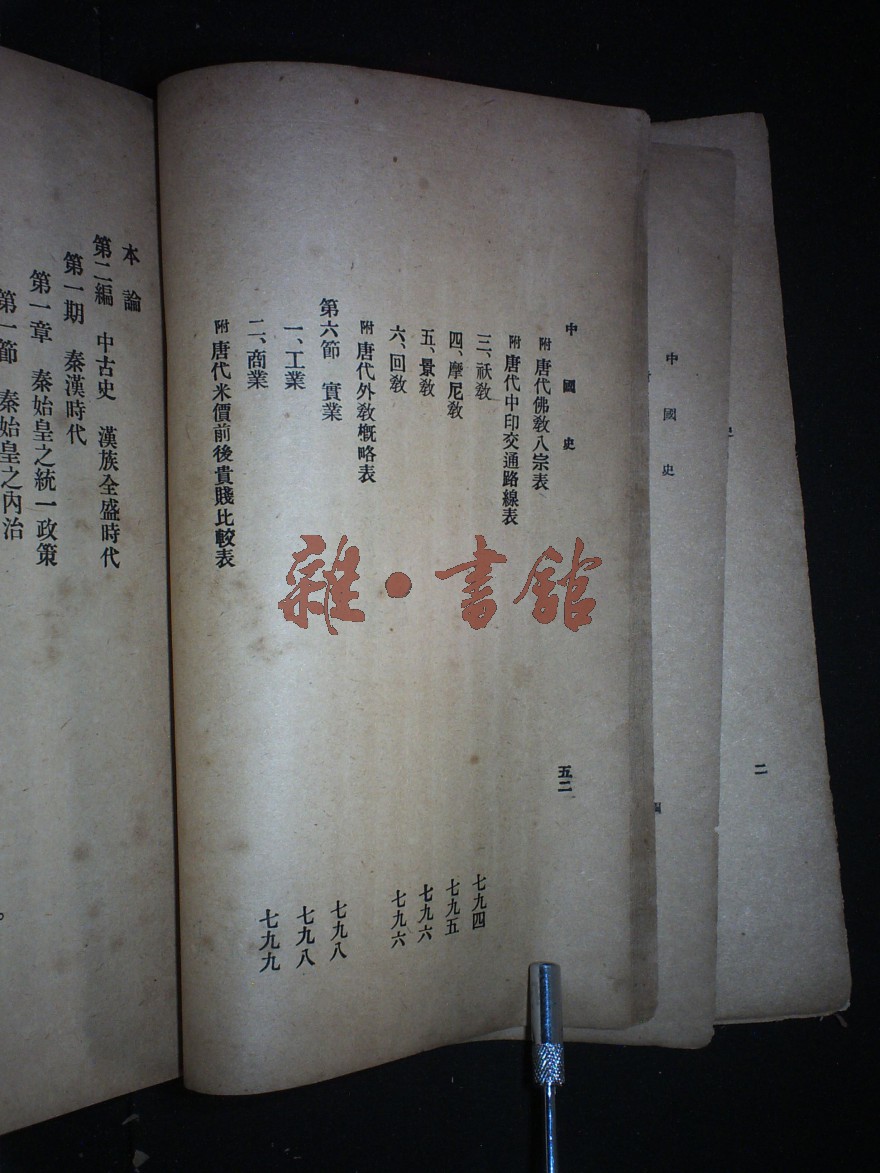 中國史
五二
附 唐代佛敎八宗表
附 唐代中印交通路線表
三、祆敎 七九四
四、摩尼敎 七九五
五、景敎 七九六
六、回敎 七九六
附 唐代外敎槪略表
第六節 實業 七九八
一、工業 七九八
二、商業 七九九
附 唐代米價前後貴賤比較表
本論
第二編 中古史 漢族全盛時代
第一期 秦漢時代
第一章 秦始皇之統一政策
第一節 秦始皇之內治
中國史
二
雜·書館